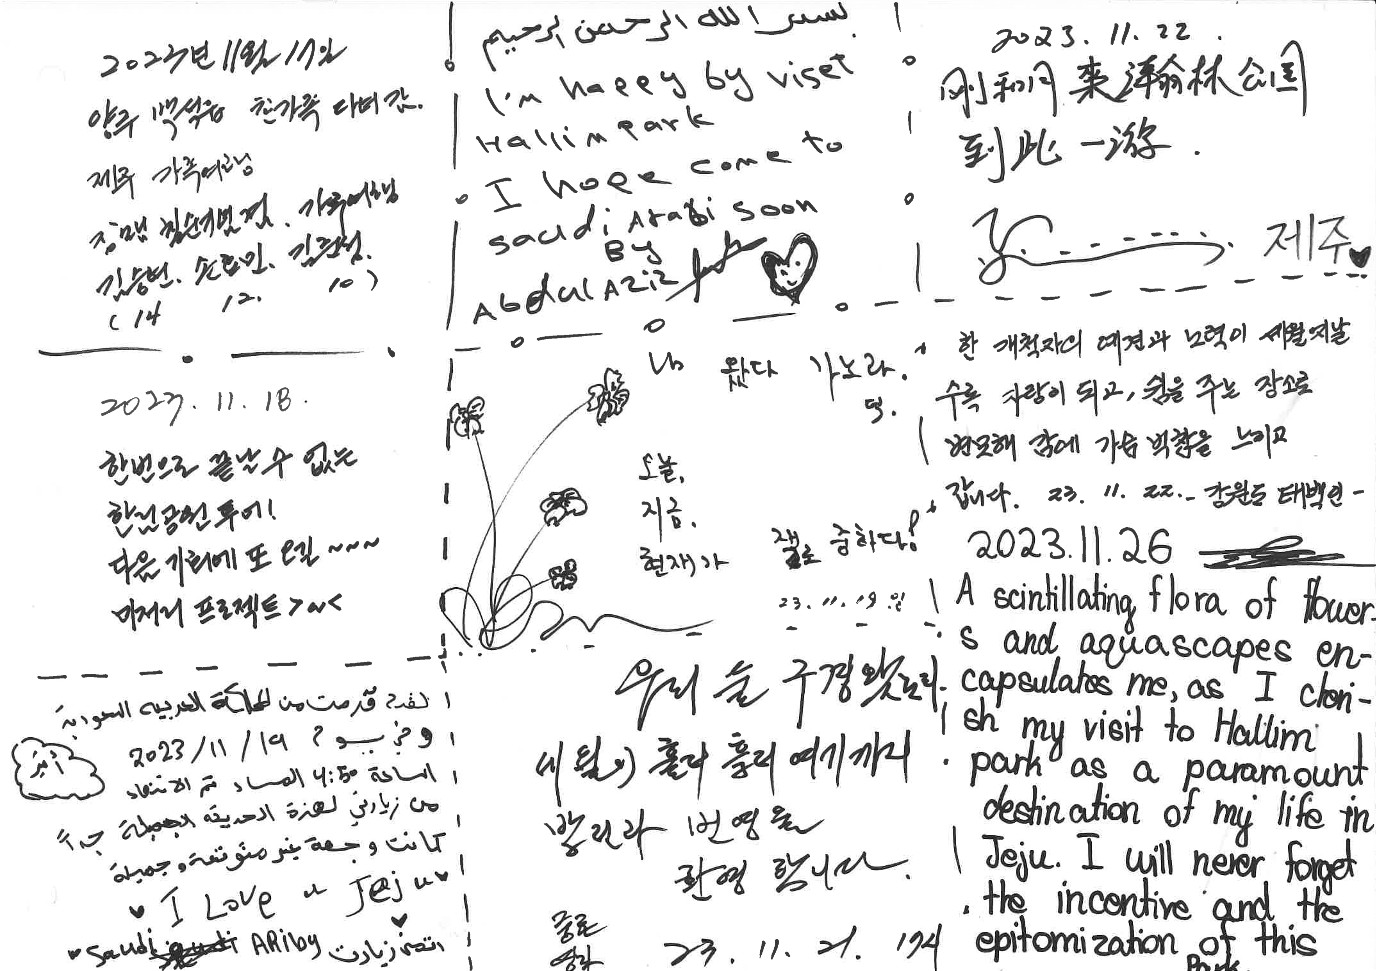 2023년 11월 17일
양주 백석읍 친가족 다녀감.
제주 가족여행
가족여행
김승현. 손효민. 김준성.
(14 12. 10)
بسم الله الرحمن الرحيم
I'm happy by viset
Hallim park
I hope come to
saudi Arabi soon
BY
Abdul Aziz
2023. 11. 22.
来瀚林公园
到此一游.
제주
2023. 11. 18.
한번으로 끝날 수 없는
한림공원 투어!
다음 기회에 또 오길 ~~~
마저리 프로젝트 >~<
나 왔다 가노라.
오늘,
지금,
현재가 젤로 중하다!
23. 11. 19. 일
한 개척자의 예견과 노력이 세월지날
수록 자랑이 되고, 쉼을 주는 장소로
변모해 감에 가슴 벅참을 느끼고
갑니다. 23. 11. 22. - 강원도 태백인 -
2023.11.26
A scintillating flora of flower-
s and aquascapes en-
capsulates me, as I cheri-
sh my visit to Hallim
park as a paramount
destination of my life in
Jeju. I will never forget
the incentive and the
epitomization of this
Park.
لقد قدمت من المملكة العربية السعودية
2023/11/19
الساعة 4:50 المساء تم الانتهاء
من زيارتي لهذة الحديقة الجميلة جداً
كانت وجهة غير متوقعة وجميلة
I Love u Jeju
Saudi ARiby
우리 늘 구경왔노라.
세월이 흘러 흘러 여기까지
왔노라
환영 합니다.
23. 11. 21. 174